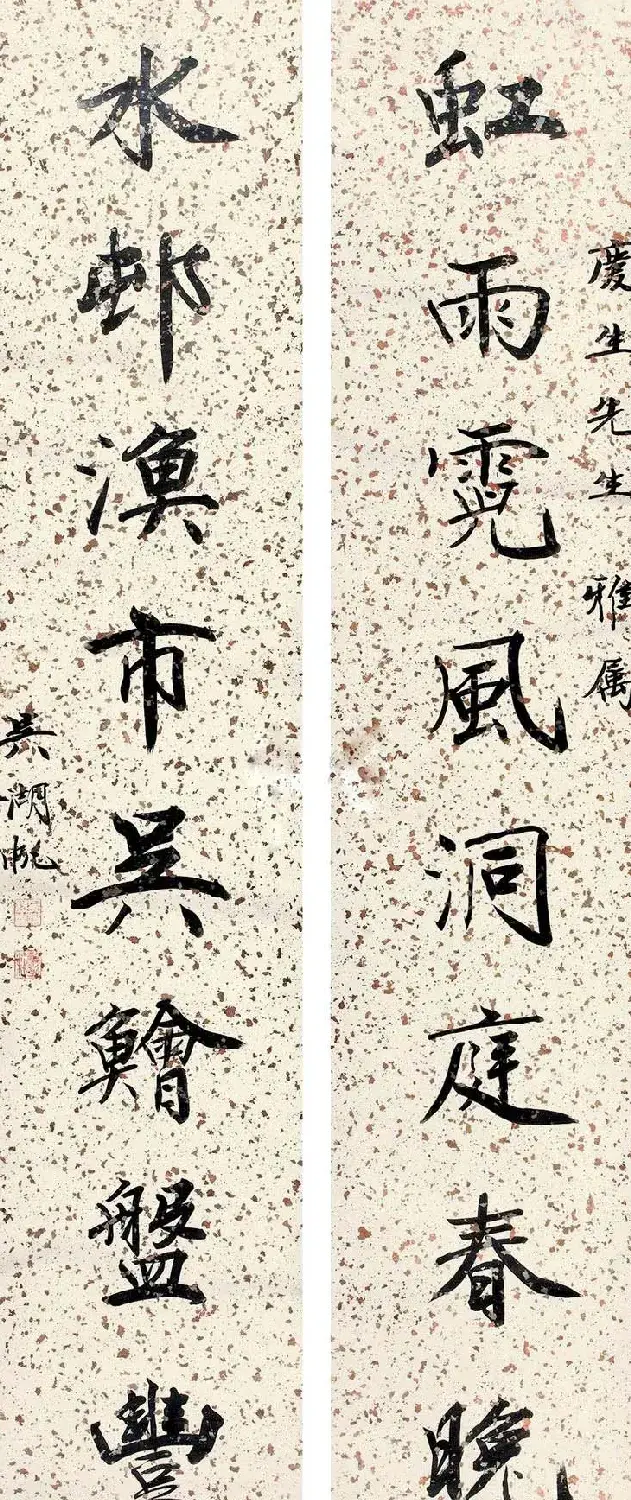 慶生先生雅屬
虹雨霓風洞庭春晚
水邨漁市吳鱠盤豐
吳湖帆